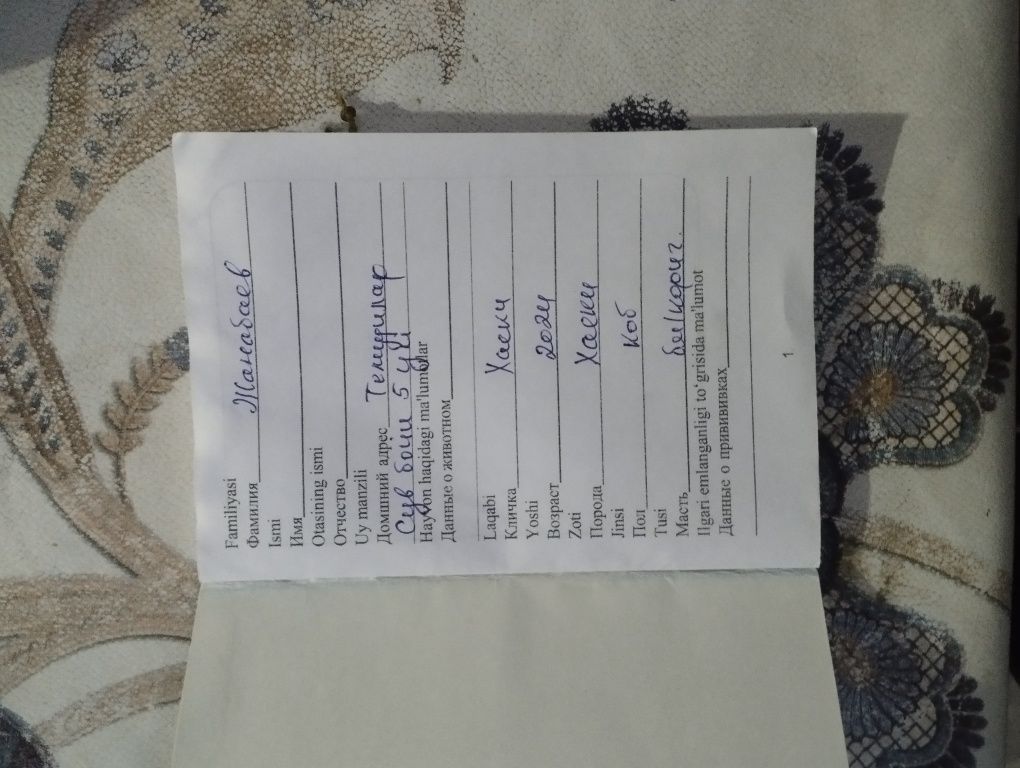 Familiyasi
Фамилия Жанабаев
Ismi
Имя
Otasining ismi
Отчество
Uy manzili
Домшний адрес Темирилар
Сув бони 5 уй
Hayvon haqidagi ma'lumotlar
Данные о животном
Laqabi
Кличка Хаски
Yoshi
Возраст 2024
Zoti
Порода Хаски
Jinsi
Пол коб
Tusi
Масть
Ilgari emlanganligi to'grisida ma'lumot
Данные о привививках
1